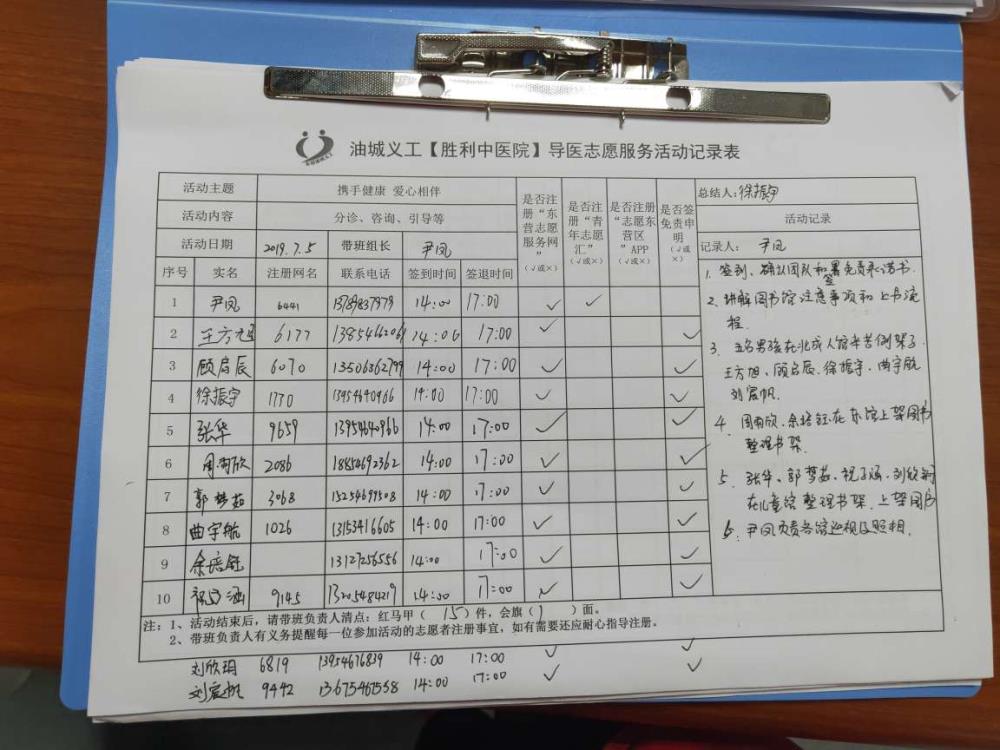 油城义工【胜利中医院】导医志愿服务活动记录表
活动主题 携手健康 爱心相伴
活动内容 分诊、咨询、引导等
活动日期 2019.7.5 带班组长 尹凤
是否注册“东营志愿服务网”（√或×） 是否注册“青年志愿汇”（√或×） 是否注册“志愿东营区”APP（√或×） 是否签免责申明（√或×）
序号 实名 注册网名 联系电话 签到时间 签退时间
1 尹凤 6441 13789837979 14:00 17:00 √ √
2 王方旭 6177 1385466206 14:00 17:00 √ √
3 顾启辰 6070 13506362799 14:00 17:00 √ √
4 徐振宇 1770 13954640966 14:00 17:00 √ √
5 张华 9659 13954640966 14:00 17:00 √ √
6 周雨欣 2086 18854692362 14:00 17:00 √ √
7 郭梦茹 3068 15254699508 14:00 17:00 √ √
8 曲宇航 1026 13153416605 14:00 17:00 √ √
9 余培钰 13127256556 14:00 17:00 √ √
10 祝子涵 9145 13205484219 14:00 17:00 √ √
总结人：徐振宇
活动记录
记录人： 尹凤
1. 签到、确认团队和签署免责承诺书.
2. 讲解图书馆注意事项和上书流
程.
3. 五名男孩在北成人馆辛苦倒架子.
王方旭、顾启辰、徐振宇、曲宇航
刘宸帆.
4. 周雨欣、余培钰在东馆上架图书
整理书架.
5. 张华、郭梦茹、祝子涵、刘欣玥
在儿童馆整理书架、上架图书
6. 尹凤负责各馆巡视及照相.
注：1、活动结束后，请带班负责人清点：红马甲（ 15 ）件，会旗（ 1 ）面。
2、带班负责人有义务提醒每一位参加活动的志愿者注册事宜，如有需要还应耐心指导注册。
刘欣玥 6819 13954676839 14:00 17:00 √ √
刘宸帆 9442 13675467558 14:00 17:00 √ √